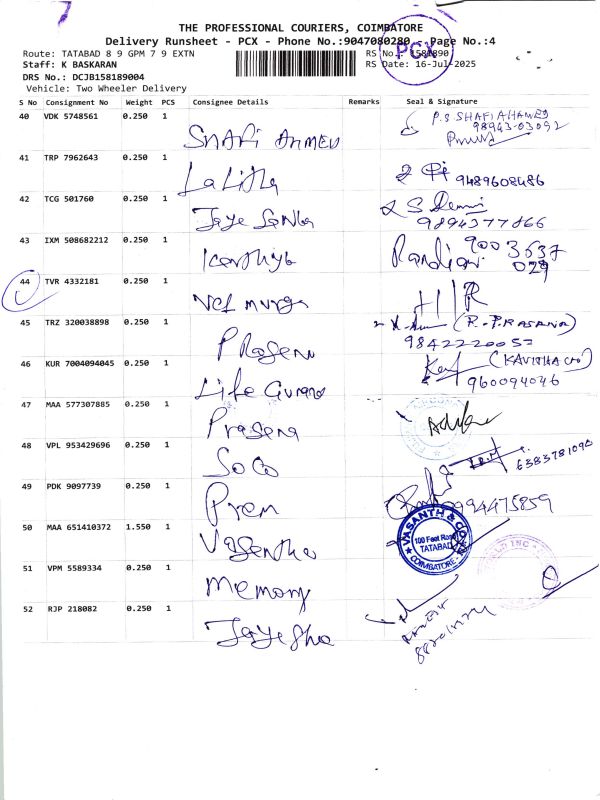 THE PROFESSIONAL COURIERS, COIMBATORE
Delivery Runsheet - PCX - Phone No.:9047080280 - Page No.:4
PCX
Route: TATABAD 8 9 GPM 7 9 EXTN RS No.: 1581890
Staff: K BASKARAN RS Date: 16-Jul-2025
DRS No.: DCJB158189004
Vehicle: Two Wheeler Delivery
S No Consignment No Weight PCS Consignee Details Remarks Seal & Signature
40 VDK 5748561 0.250 1 SHAFI AHMED P.S SHAFI AHAMED
98943-03092
41 TRP 7962643 0.250 1 Lalitha 9489608486
42 TCG 501760 0.250 1 9894377866
43 IXM 508682212 0.250 1 Karthiyk Pandian 9003537
029
44 TVR 4332181 0.250 1 Vel murga
45 TRZ 320038898 0.250 1 Prasena (R.PRASANA)
9842220052
46 KUR 7004094045 0.250 1 Life Gurano (KAVITHA)
960094046
47 MAA 577307885 0.250 1 Prasena
48 VPL 953429696 0.250 1 SoCo 6383781090
49 PDK 9097739 0.250 1 Prem 9994475859
50 MAA 651410372 1.550 1 Vasantha
VASANTH & CO.
100 Feet Road
TATABAD
COIMBATORE
51 VPM 5589334 0.250 1 Memory
52 RJP 218082 0.250 1 Jayesha